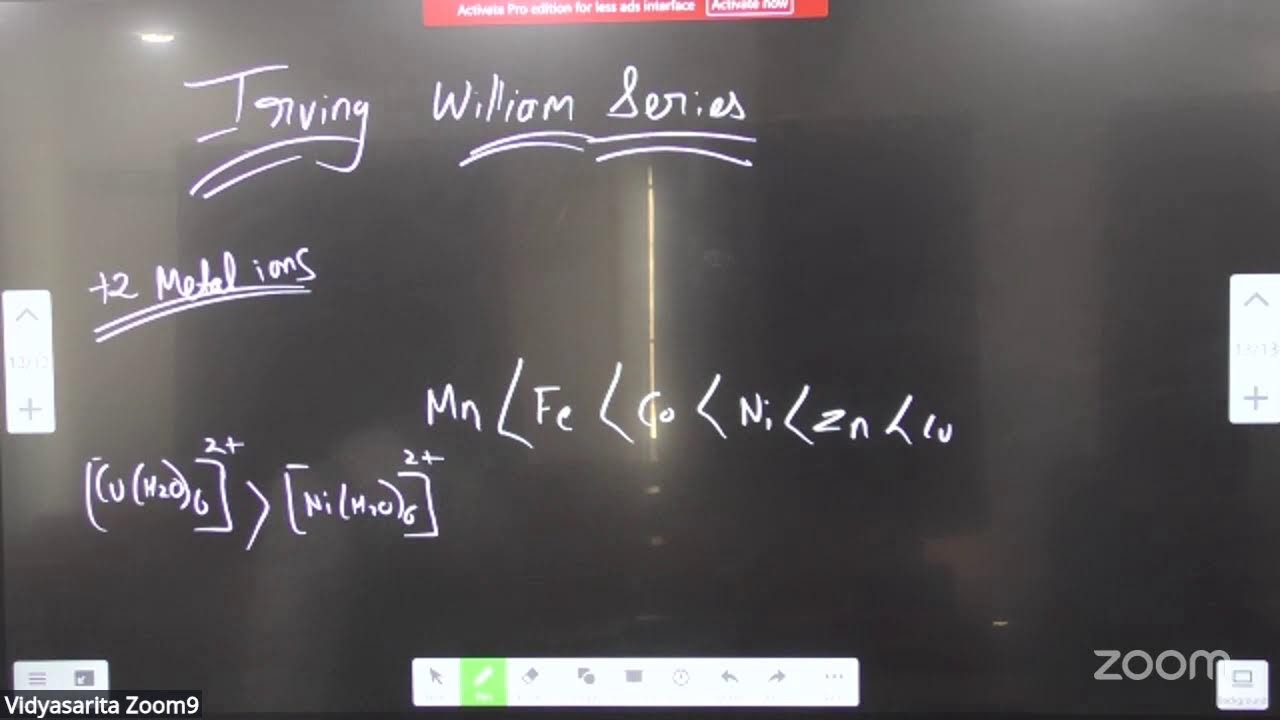 Activate Pro edition for less ads interface Activate now
Irving William Series
+2 Metal ions
12/12
13/13
Mn < Fe < Co < Ni < Zn < Cu
[Cu(H2O)6]2+ > [Ni(H2O)6]2+
zoom
Background
Vidyasarita Zoom9